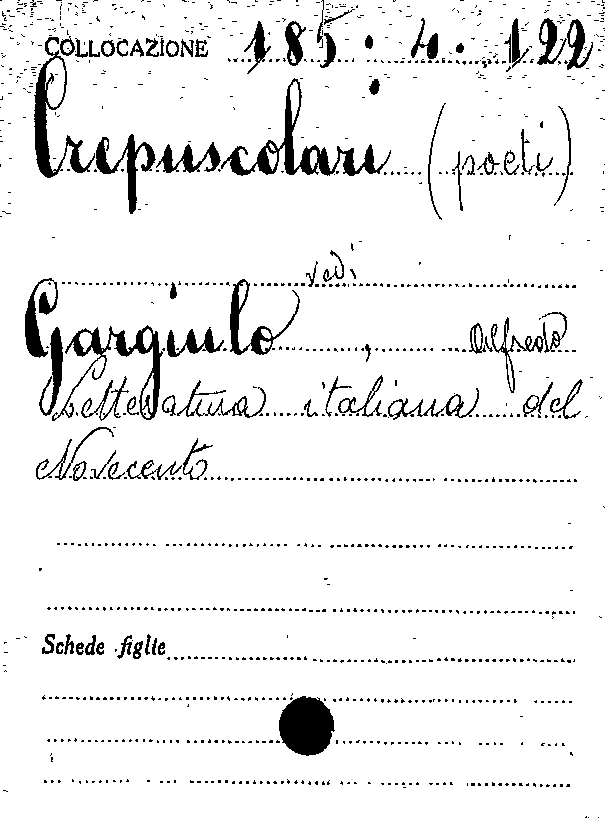 COLLOCAZIONE 185.4.122
Crepuscolari (poeti)
vedi
Gargiulo, Alfredo
Letteratura italiana del
Novecento
Schede figlie